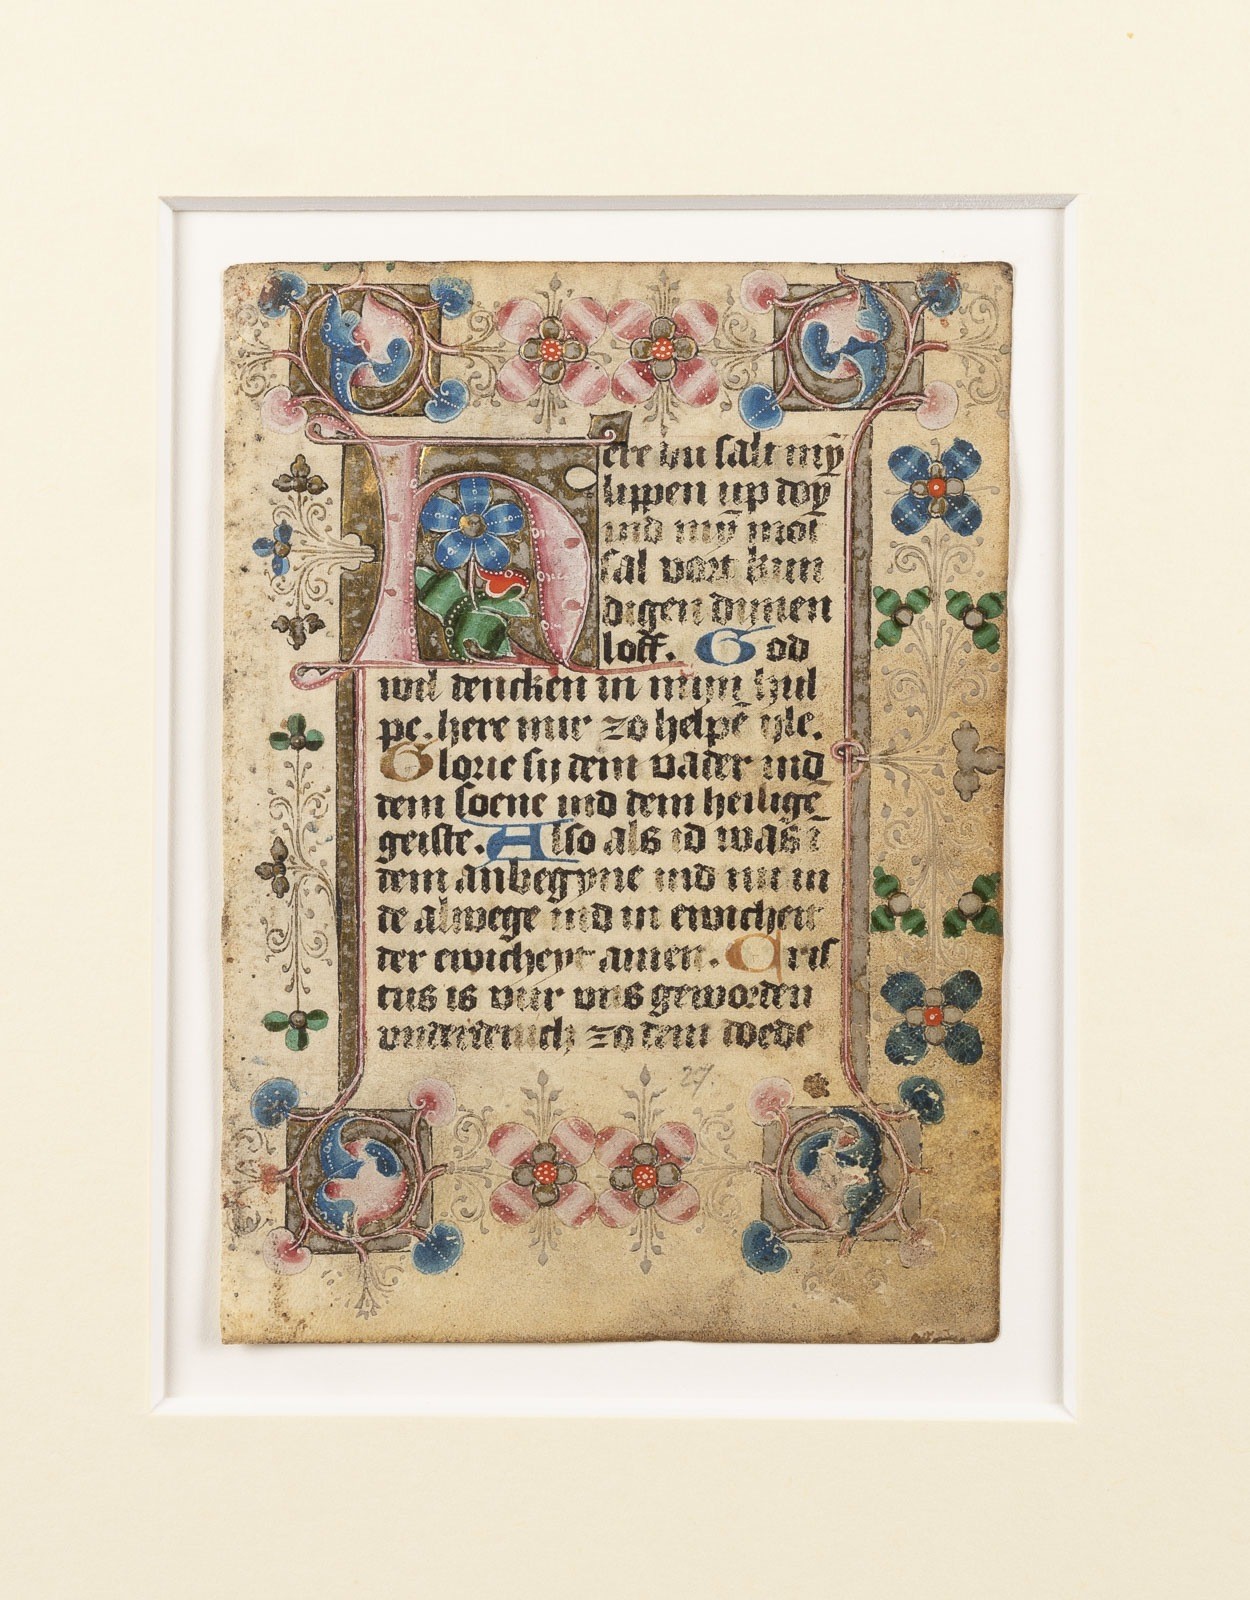 Here du salt mȳ
lippen up doȳ
ind mȳ mōt
sal vort kun
digen dynen
loff. God
wil dencken in myn hul
pe. here mir zo helpē yle.
Glorie sy dem vader ind
dem soene ind dem heiligē
geiste. Also als id was ī
dem anbegyne ind nu in
de alwege ind in ewicheit
der ewicheyt amen. Cris
tus is vur uns geworden
underdenich zo dem dode
27.